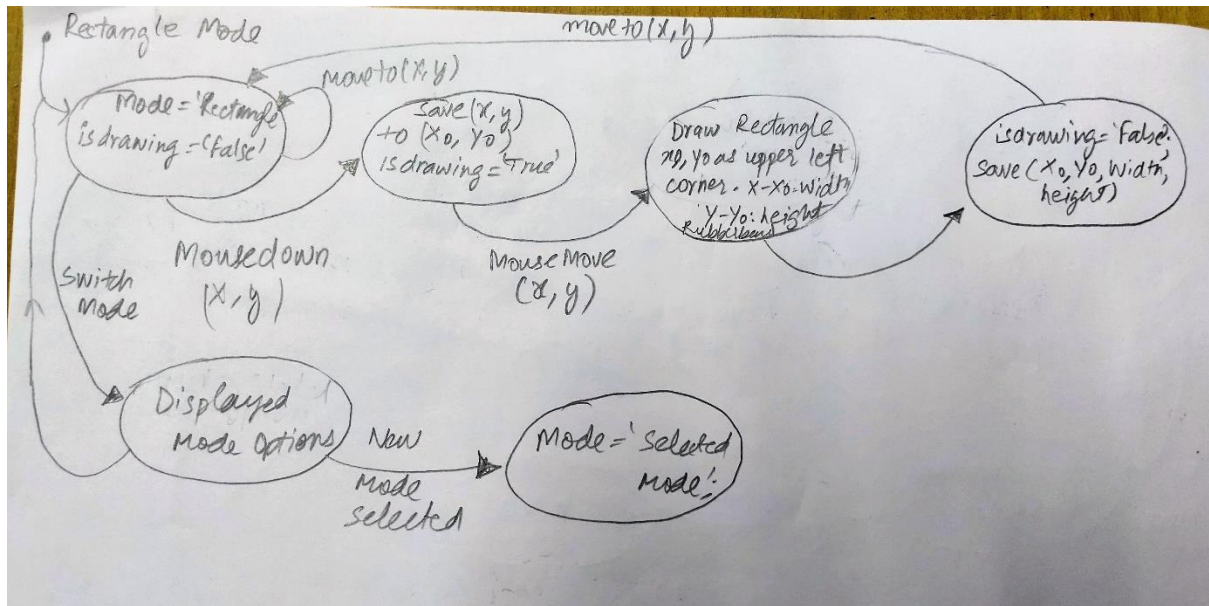 Rectangle Mode
moveto(x,y)
moveto(x,y)
Mode='Rectangle
is drawing='False'
Save(x,y)
to (X0, Y0)
is drawing='True'
Draw Rectangle
x0, y0 as upper left
corner. X-X0:width
Y-Y0:height
Rubberband
isdrawing='False'.
Save (X0, Y0, Width,
height)
Mousedown
(X,y)
MouseMove
(x,y)
Switch
Mode
Displayed
Mode Options
New
Mode
Selected
Mode='Selected
Mode'.